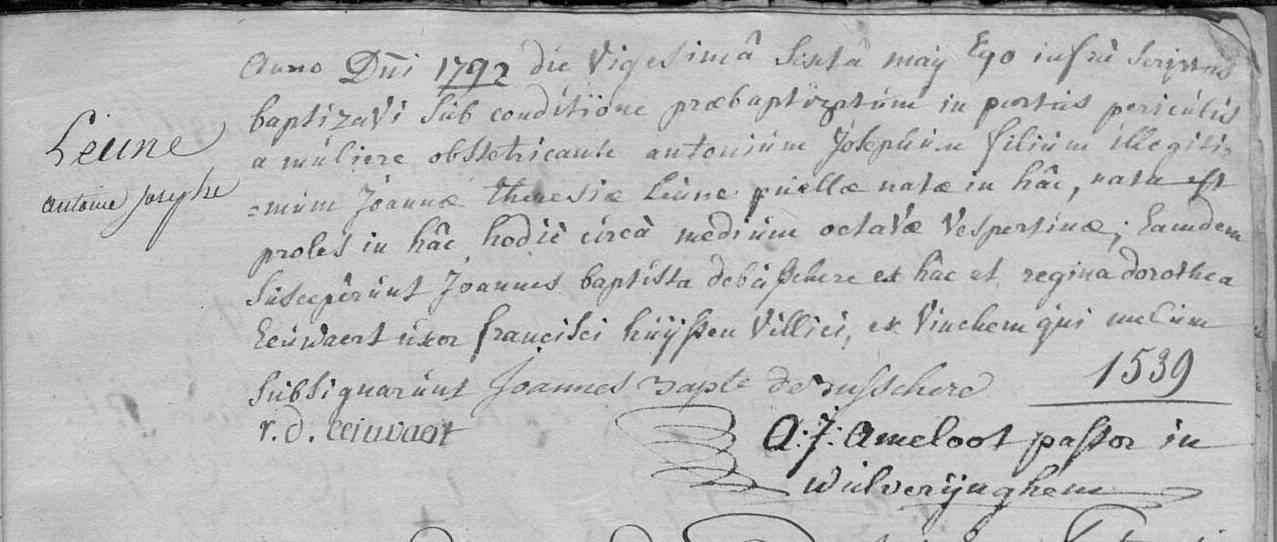 Leune
antoine Josephe
Anno Dñi 1792 die Vigesimâ Sextâ maÿ Ego infrà Scriptus
baptizavi Sub conditione præbaptizatum in partûs periculis
a muliere obstetricante antonium Josephum filium illegiti=
=mum Joannæ theresiæ Leune puellæ natæ in hâc, nata est
proles in hâc hodiè circà mediam octavæ Vespertinæ; Eamdem
Susceperunt Joannes baptista debusschere ex hâc et regina dorothea
Eeuwaert uxor francisci huÿssen Villici, ex Vinchem qui mecum
Subsignarunt Joannes bapte de busschere
1539
r. d. eeuwaert
A: J: Ameloot pastor in
wulverÿnghem